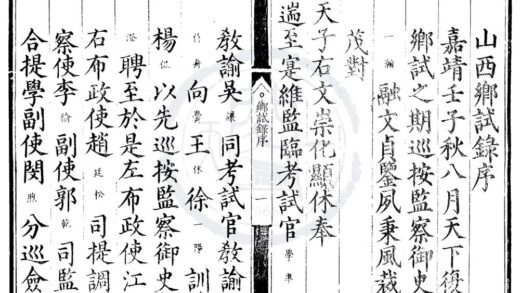 山西鄉試錄序
嘉靖壬子秋八月天下復
鄉試之期巡按監察御史
一瀚 融文貞鑒夙秉風裁
茂對
天子右文崇化顯休奉
遄至寔維監臨考試官
鄉試錄序 一
教諭吳 同考試官教諭
向 王 徐 訓
楊 侃 以先巡按監察御史
聘至於是左布政使江
右布政使趙 廷松 司提調
察使李 副使郭 乾 司監
合提學副使閔 煦 分巡僉